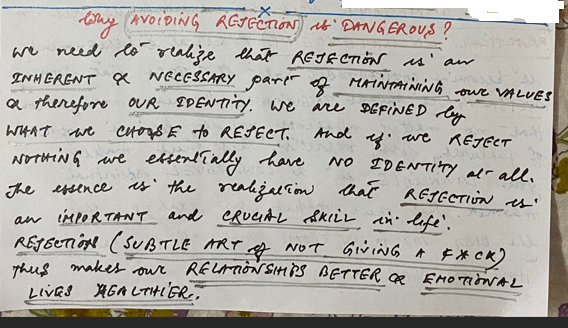 Why AVOIDING REJECTION is DANGEROUS?
We need to realize that REJECTION is an
INHERENT & NECESSARY part of MAINTAINING our VALUES
& therefore OUR IDENTITY. We are DEFINED by
WHAT we CHOOSE to REJECT. And if we REJECT
NOTHING we essentially have NO IDENTITY at all.
The essence is the realization that REJECTION is
an IMPORTANT and CRUCIAL SKILL in life.
REJECTION (SUBTLE ART of NOT GIVING A F*CK)
thus makes our RELATIONSHIPS BETTER & EMOTIONAL
LIVES HEALTHIER.